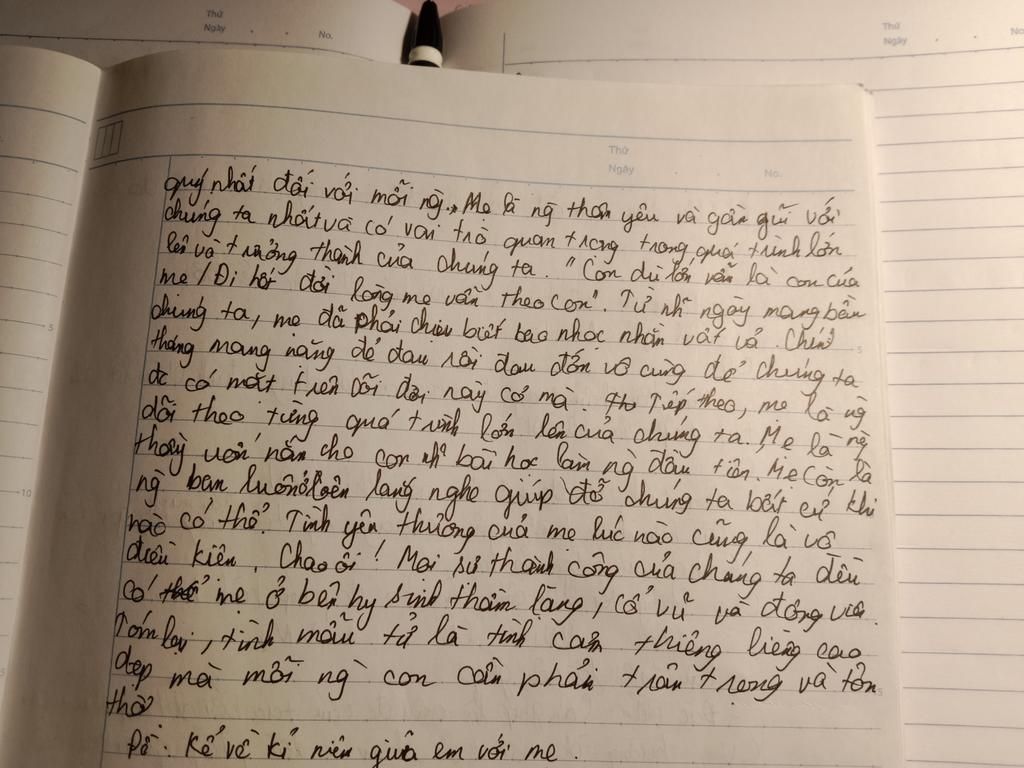 Thứ
Ngày
No.
Thứ
Ngày
No
Thứ
Ngày
No.
quý nhất đối với mỗi ng. Mẹ là ng thân yêu và gần gũi với
chúng ta nhất và có vai trò quan trọng trong quá trình lớn
lên và trưởng thành của chúng ta. "Con dù lớn vẫn là con của
mẹ / Đi hết đời lòng mẹ vẫn theo con". Từ nh~ ngày mang bầu
chúng ta, mẹ đã phải chịu biết bao nhọc nhằn vất vả. Chín
tháng mang nặng đẻ đau rồi đau đớn vô cùng để chúng ta
đc có mặt trên cõi đời này cơ mà. Tiếp theo, mẹ là ng
dõi theo từng quá trình lớn lên của chúng ta. Mẹ là ng
thầy uốn nắn cho con nh~ bài học làm ng đầu tiên. Mẹ còn là
ng bạn luôn ở bên lắng nghe giúp đỡ chúng ta bất cứ khi
nào có thể. Tình yêu thương của mẹ lúc nào cũng là vô
điều kiện. Chao ôi! Mọi sự thành công của chúng ta đều
có mẹ ở bên hy sinh thầm lặng, cổ vũ và động viên.
Tóm lại, tình mẫu tử là tình cảm thiêng liêng cao
đẹp mà mỗi ng con cần phải trân trọng và tôn
thờ
Đề: Kể về kỉ niệm giữa em với mẹ.
5
10